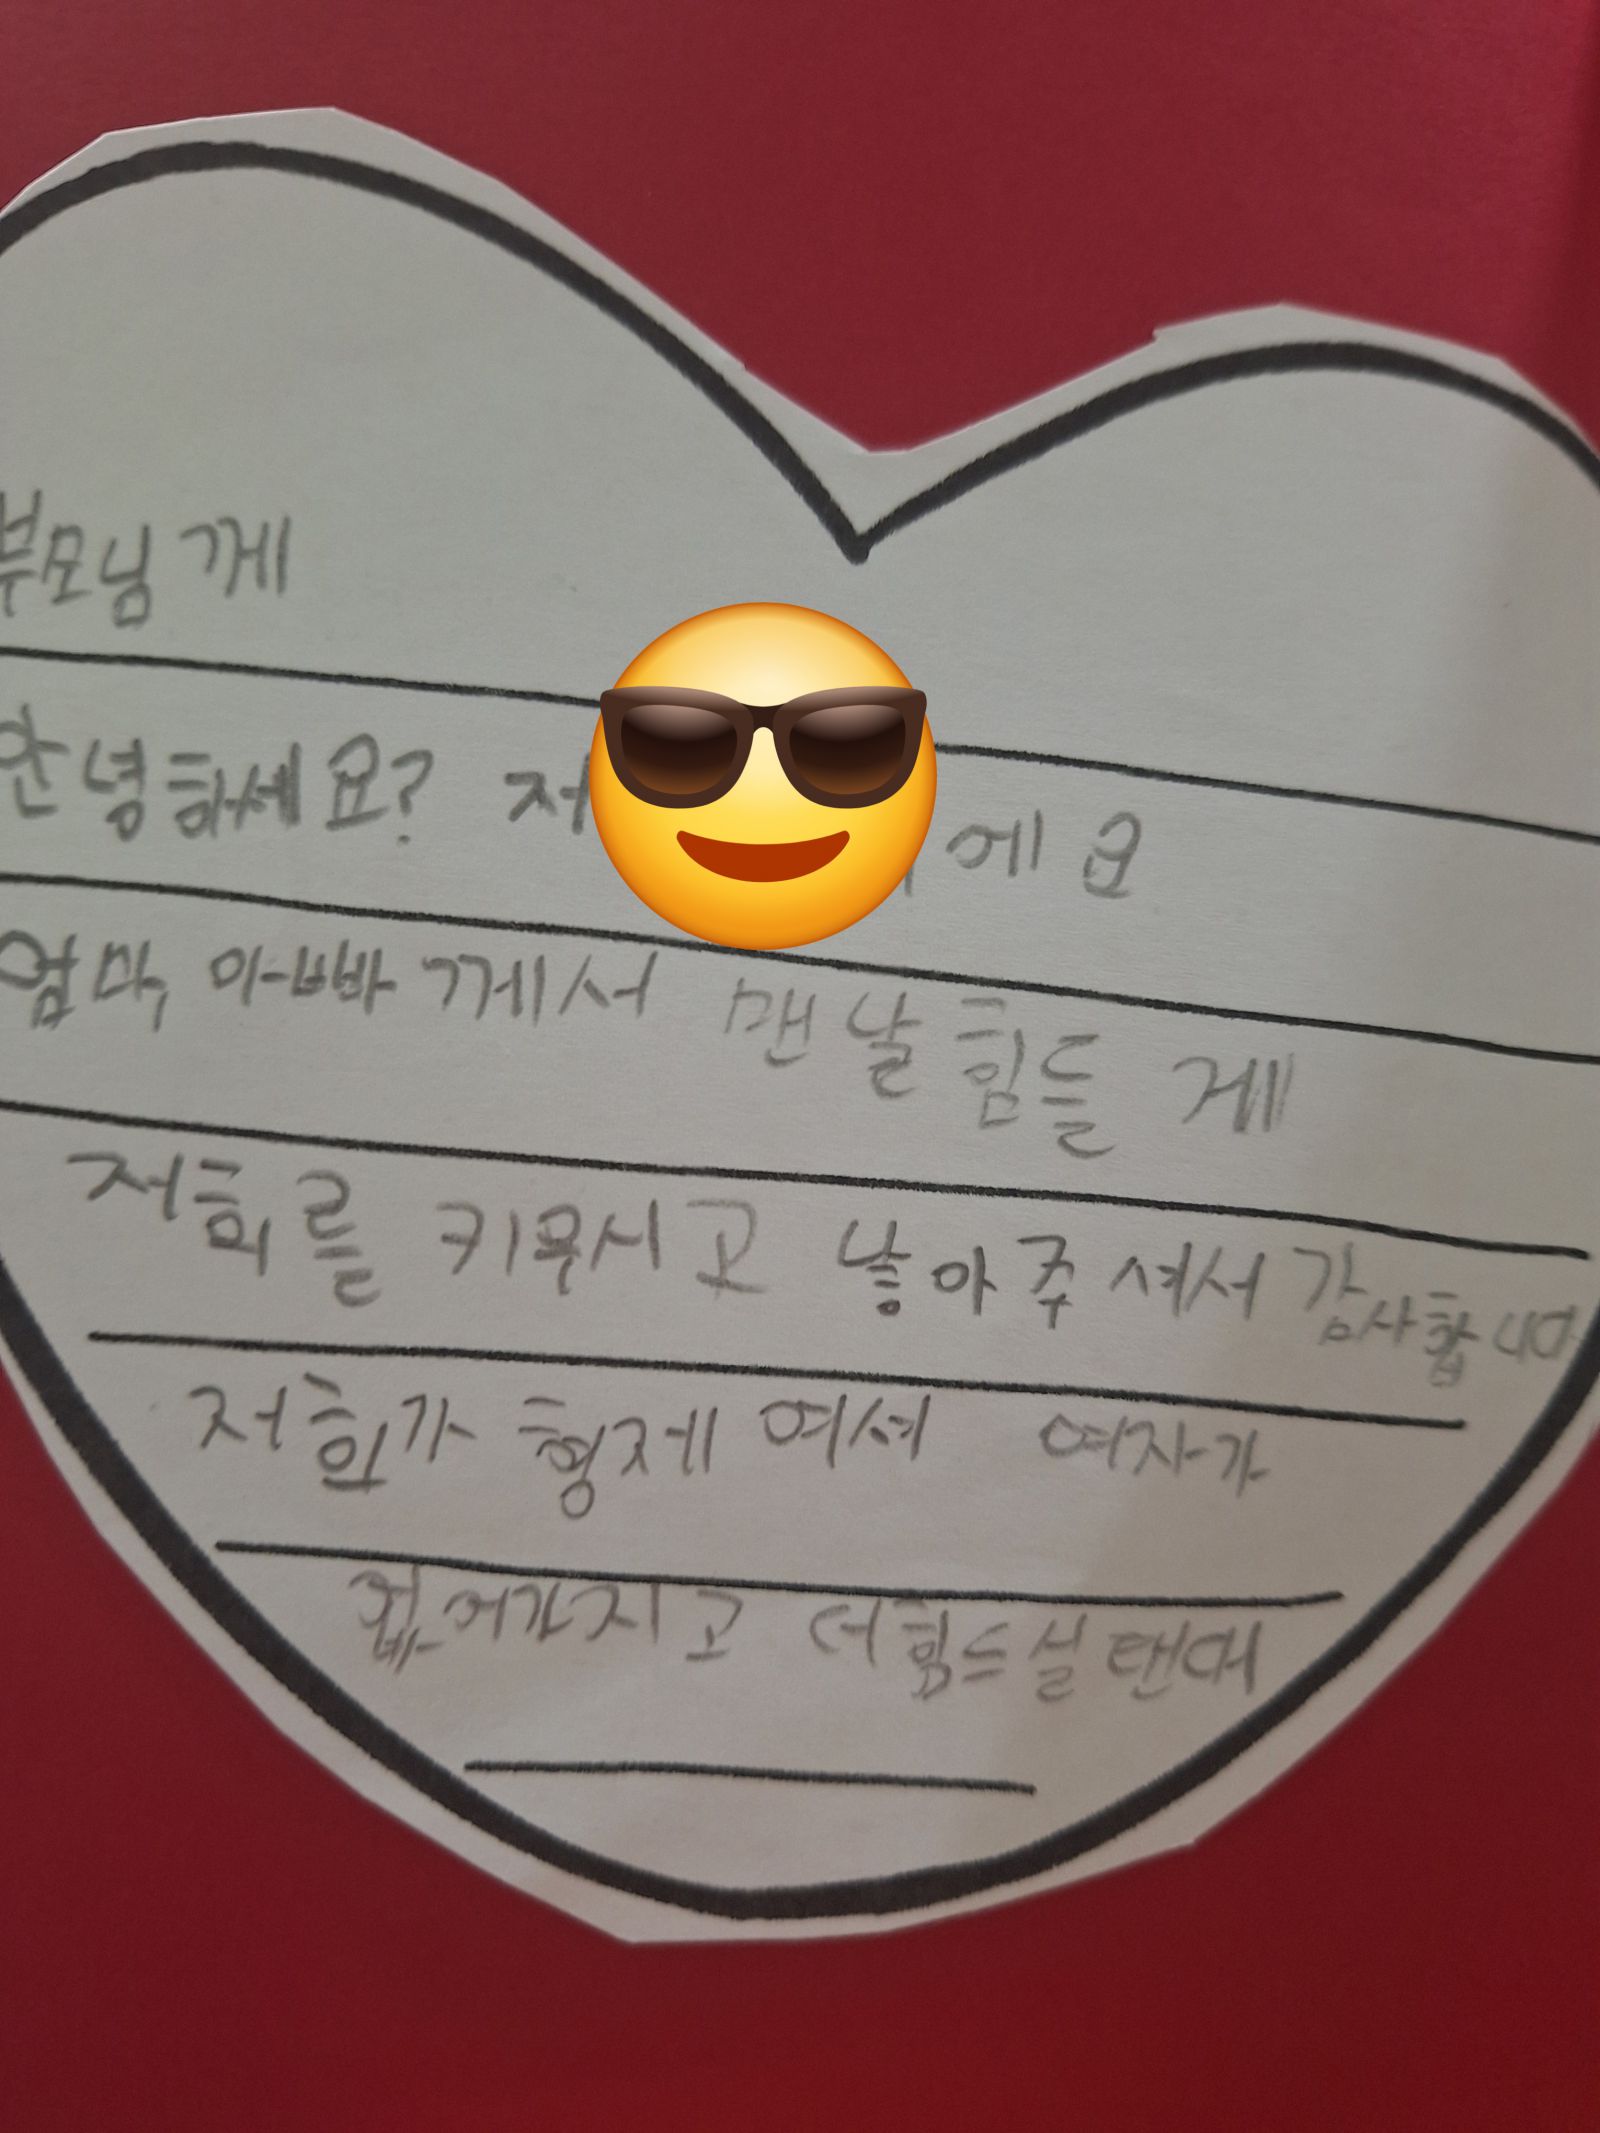 부모님께
안녕하세요? 저 에요
엄마, 아빠께서 맨날 힘들게
저희를 키우시고 낳아주셔서 감사합니다
저희가 형제여셔 여자가
없어가지고 더 힘드실탠대